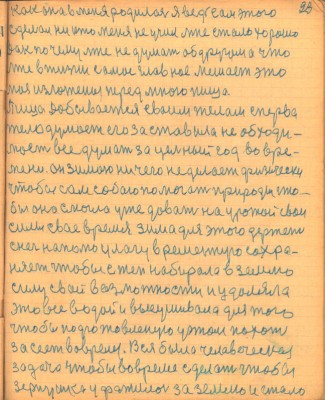 как она в меня родилась я ведь сам этого
сделал ни кто меня не учил мне стало хорошо
а как почему мне не думать об другим а что
мне в жизни самое главное мешает это
моя изложеная предо мною пища.
Пища добывается своим телам сперва
тело думает его заставила не обходи-
мость все думать за целый год во вре-
мени. он зимою ничего не делает физически
чтобы сам собою помогат природы что-
бы она смогла уже давать на урожай свои
силы свае время зима для этого держит
снег на полю и лагу в время зимую сохра-
няет чтобы степ набирала в землю
силу свой возможности и удоляла
это все водой и выкушивала для того
чтобы подготовленную у этом пахоту
засеет вовремя. Вся была человеческая
задача чтобы вовремя сделать чтобы
зернушка у фатилась за землю и стало